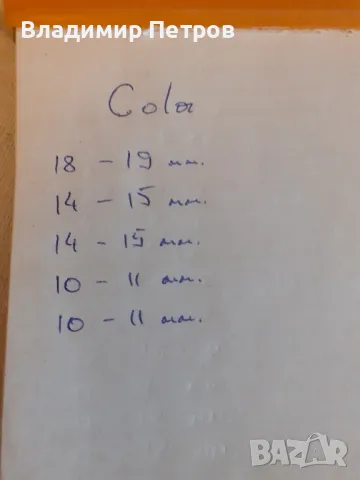 Владимир Петров
Cola
18 - 19 мм.
14 - 15 мм.
14 - 15 мм.
10 - 11 мм.
10 - 11 мм.
BAZAR